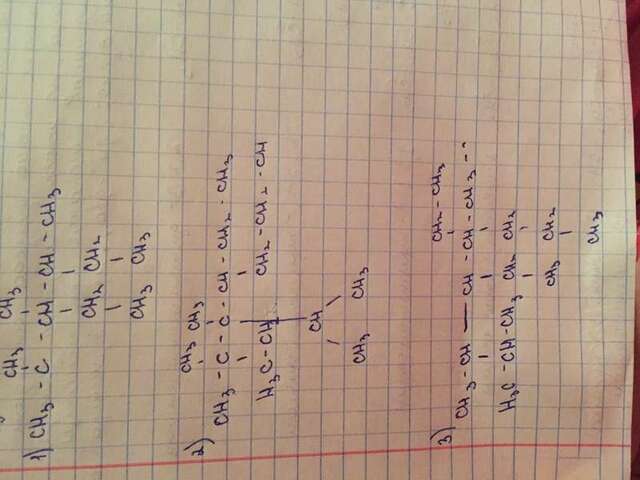 CH₃ CH₃
1) CH₃ - C - CH - CH - CH₃
CH₂ CH₂
CH₃ CH₃
CH₃ CH₃
2) CH₃ - C - C - CH - CH₂ - CH₃
H₃C - CH₂ CH₂ - CH₂ - CH
CH
CH₃ CH₃
CH₂ - CH₃
3) CH₃ - CH — CH - CH - CH₃ --
H₃C - CH - CH₃ CH₂ CH₂
CH₃ CH₂
CH₃